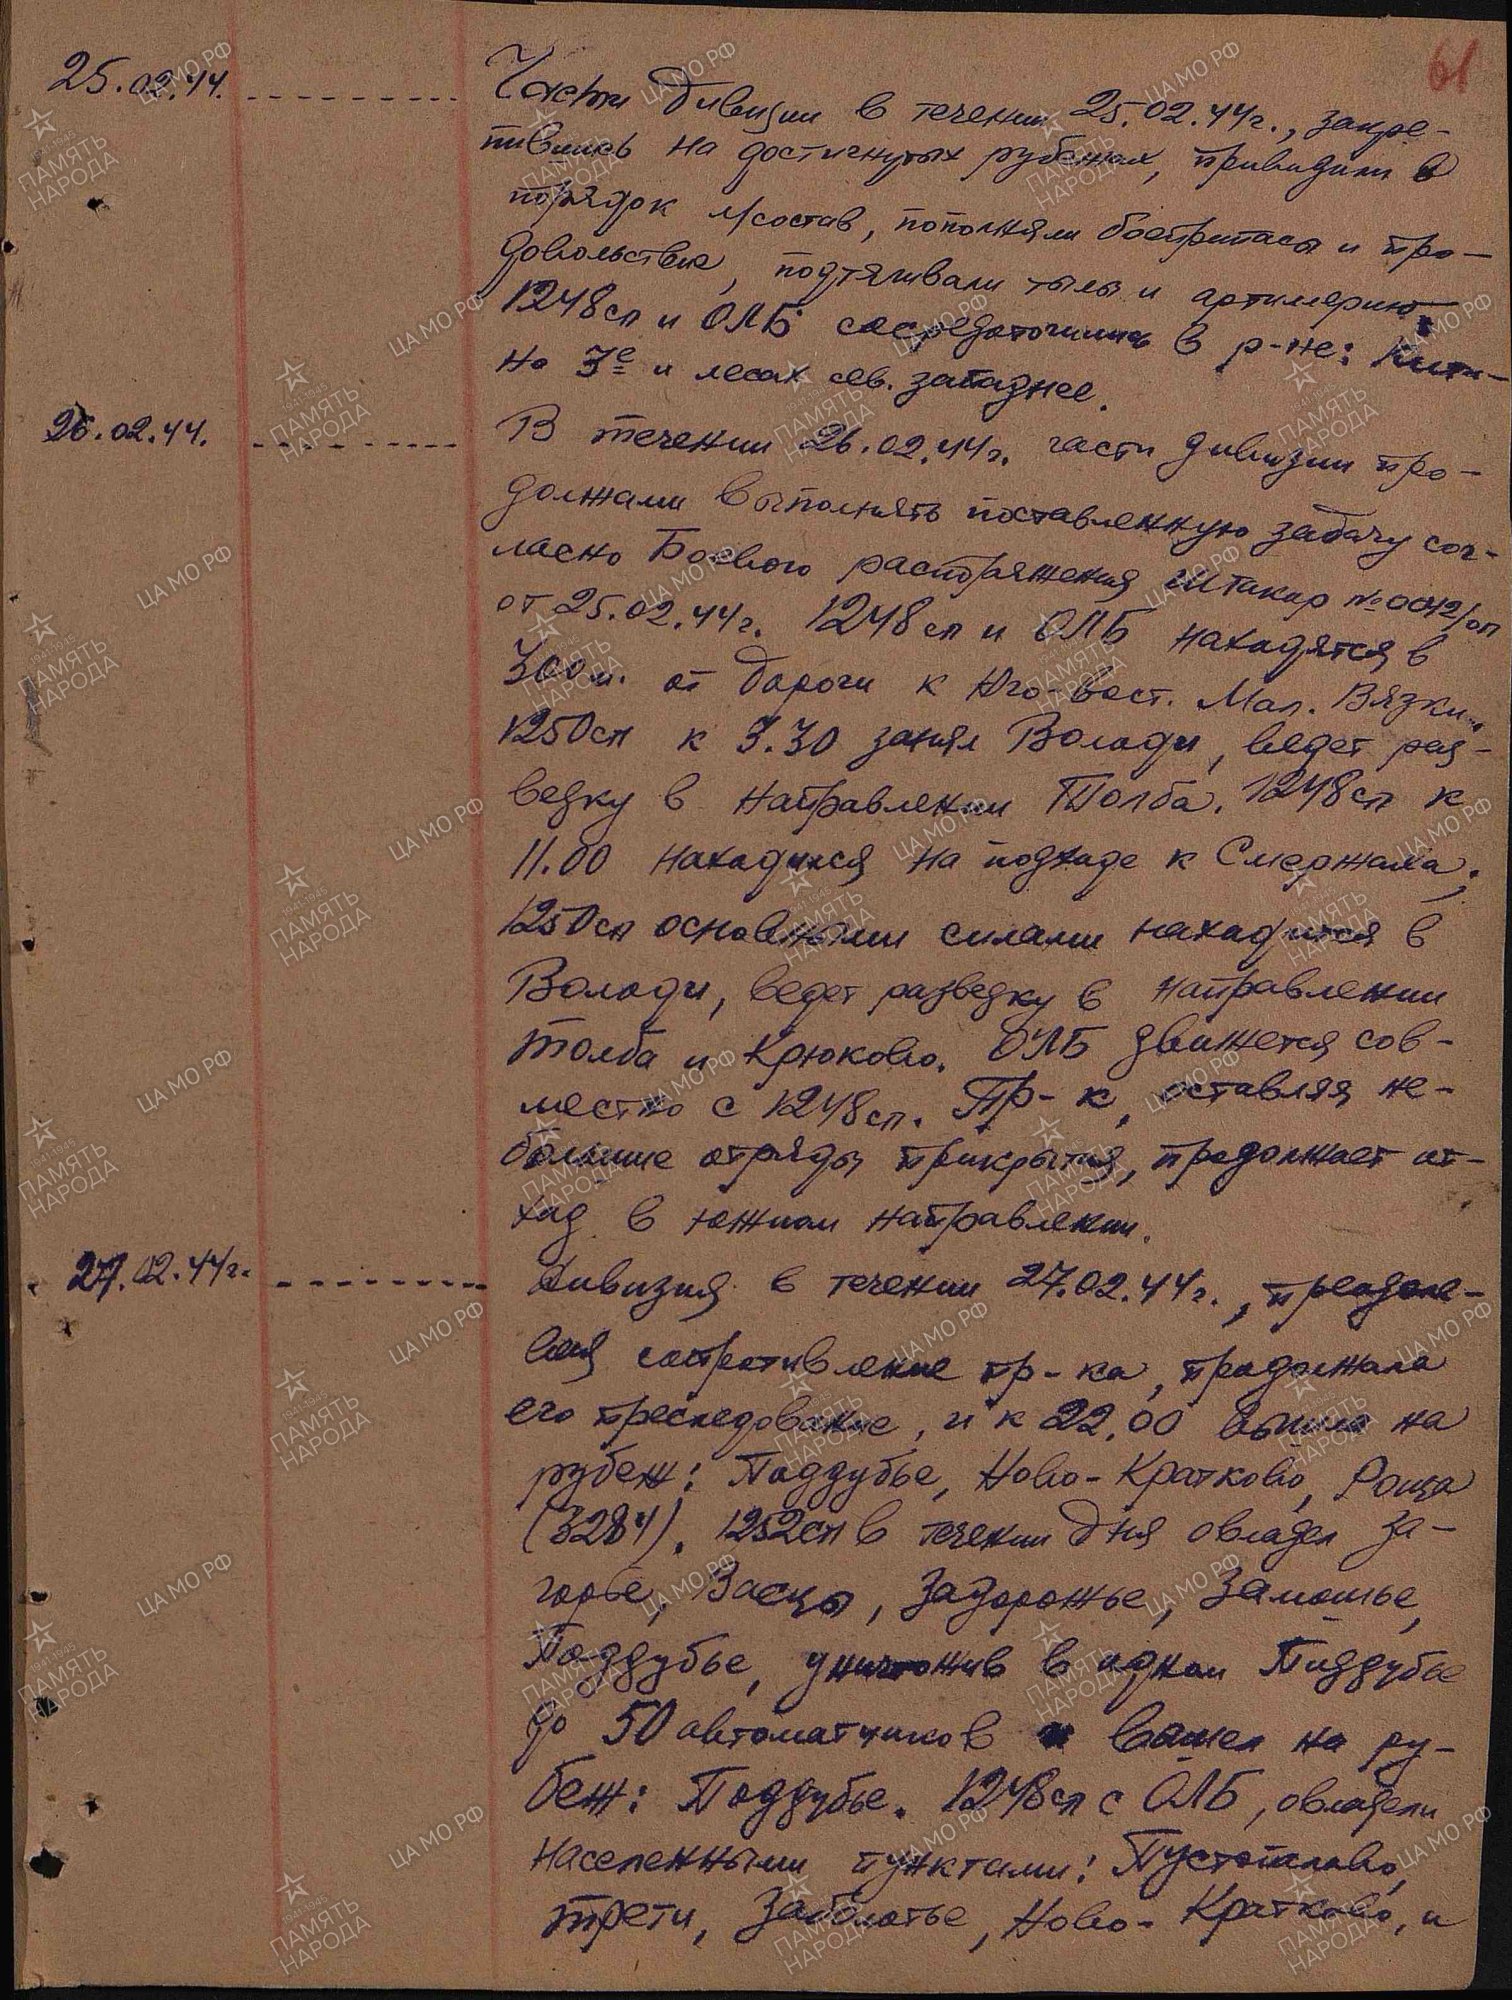 61
25.02.44. Части дивизии в течении 25.02.44г., закре-
пившись на достигнутых рубежах, приводили в
порядок л/состав, пополняли боеприпасы и про-
довольствие, подтягивали тылы и артиллерию.
1248сп и ОЛБ сосредоточились в р-не:
но 3е и лесах сев. западнее.
26.02.44. В течении 26.02.44г. части дивизии про-
должали выполнять поставленную задачу сог-
ласно Боевого распоряжения Штакор №0042/оп
от 25.02.44г. 1248сп и ОЛБ находятся в
300м. от дороги к юго-вост. Мал. Вязки.
1250сп к 3.30 занял Володи, ведет раз-
ведку в направлении Толба. 1248сп к
11.00 находился на подходе к Смержала;
1250сп основными силами находится в
Володи, ведет разведку в направлении
Толба и Крюково. ОЛБ движется сов-
местно с 1248сп. Пр-к, оставляя не-
большие отряды прикрытия, продолжает от-
ход в южном направлении.
27.02.44г. Дивизия в течении 27.02.44г., преодоле-
вая сопротивление пр-ка, продолжала
его преследование, и к 22.00 вышла на
рубеж: Поддубье, Ново-Кратково, Роща
(3284). 1252сп в течении дня овладел За-
горье, Васцы, Задорожье, Замошье,
Поддубье, уничтожив в одном Поддубье
до 50 автоматчиков и вышел на ру-
беж: Поддубье. 1248сп с ОЛБ, овладели
населенными пунктами:
Трети, Заболотье, Ново-Кратково, и
ПАМЯТЬ НАРОДА
1941-1945
ЦА МО РФ